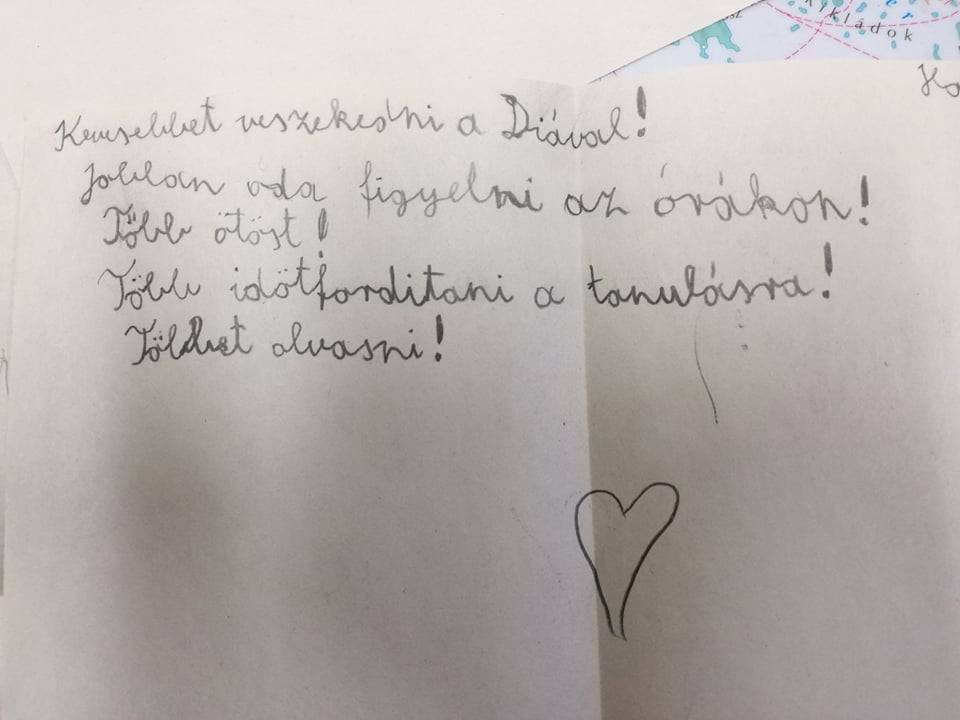 Kikládok
Ho
Kevesebbet veszekedni a Diával!
Jobban oda figyelni az órákon!
Több ötöst!
Több idötforditani a tanulásra!
Többet olvasni!